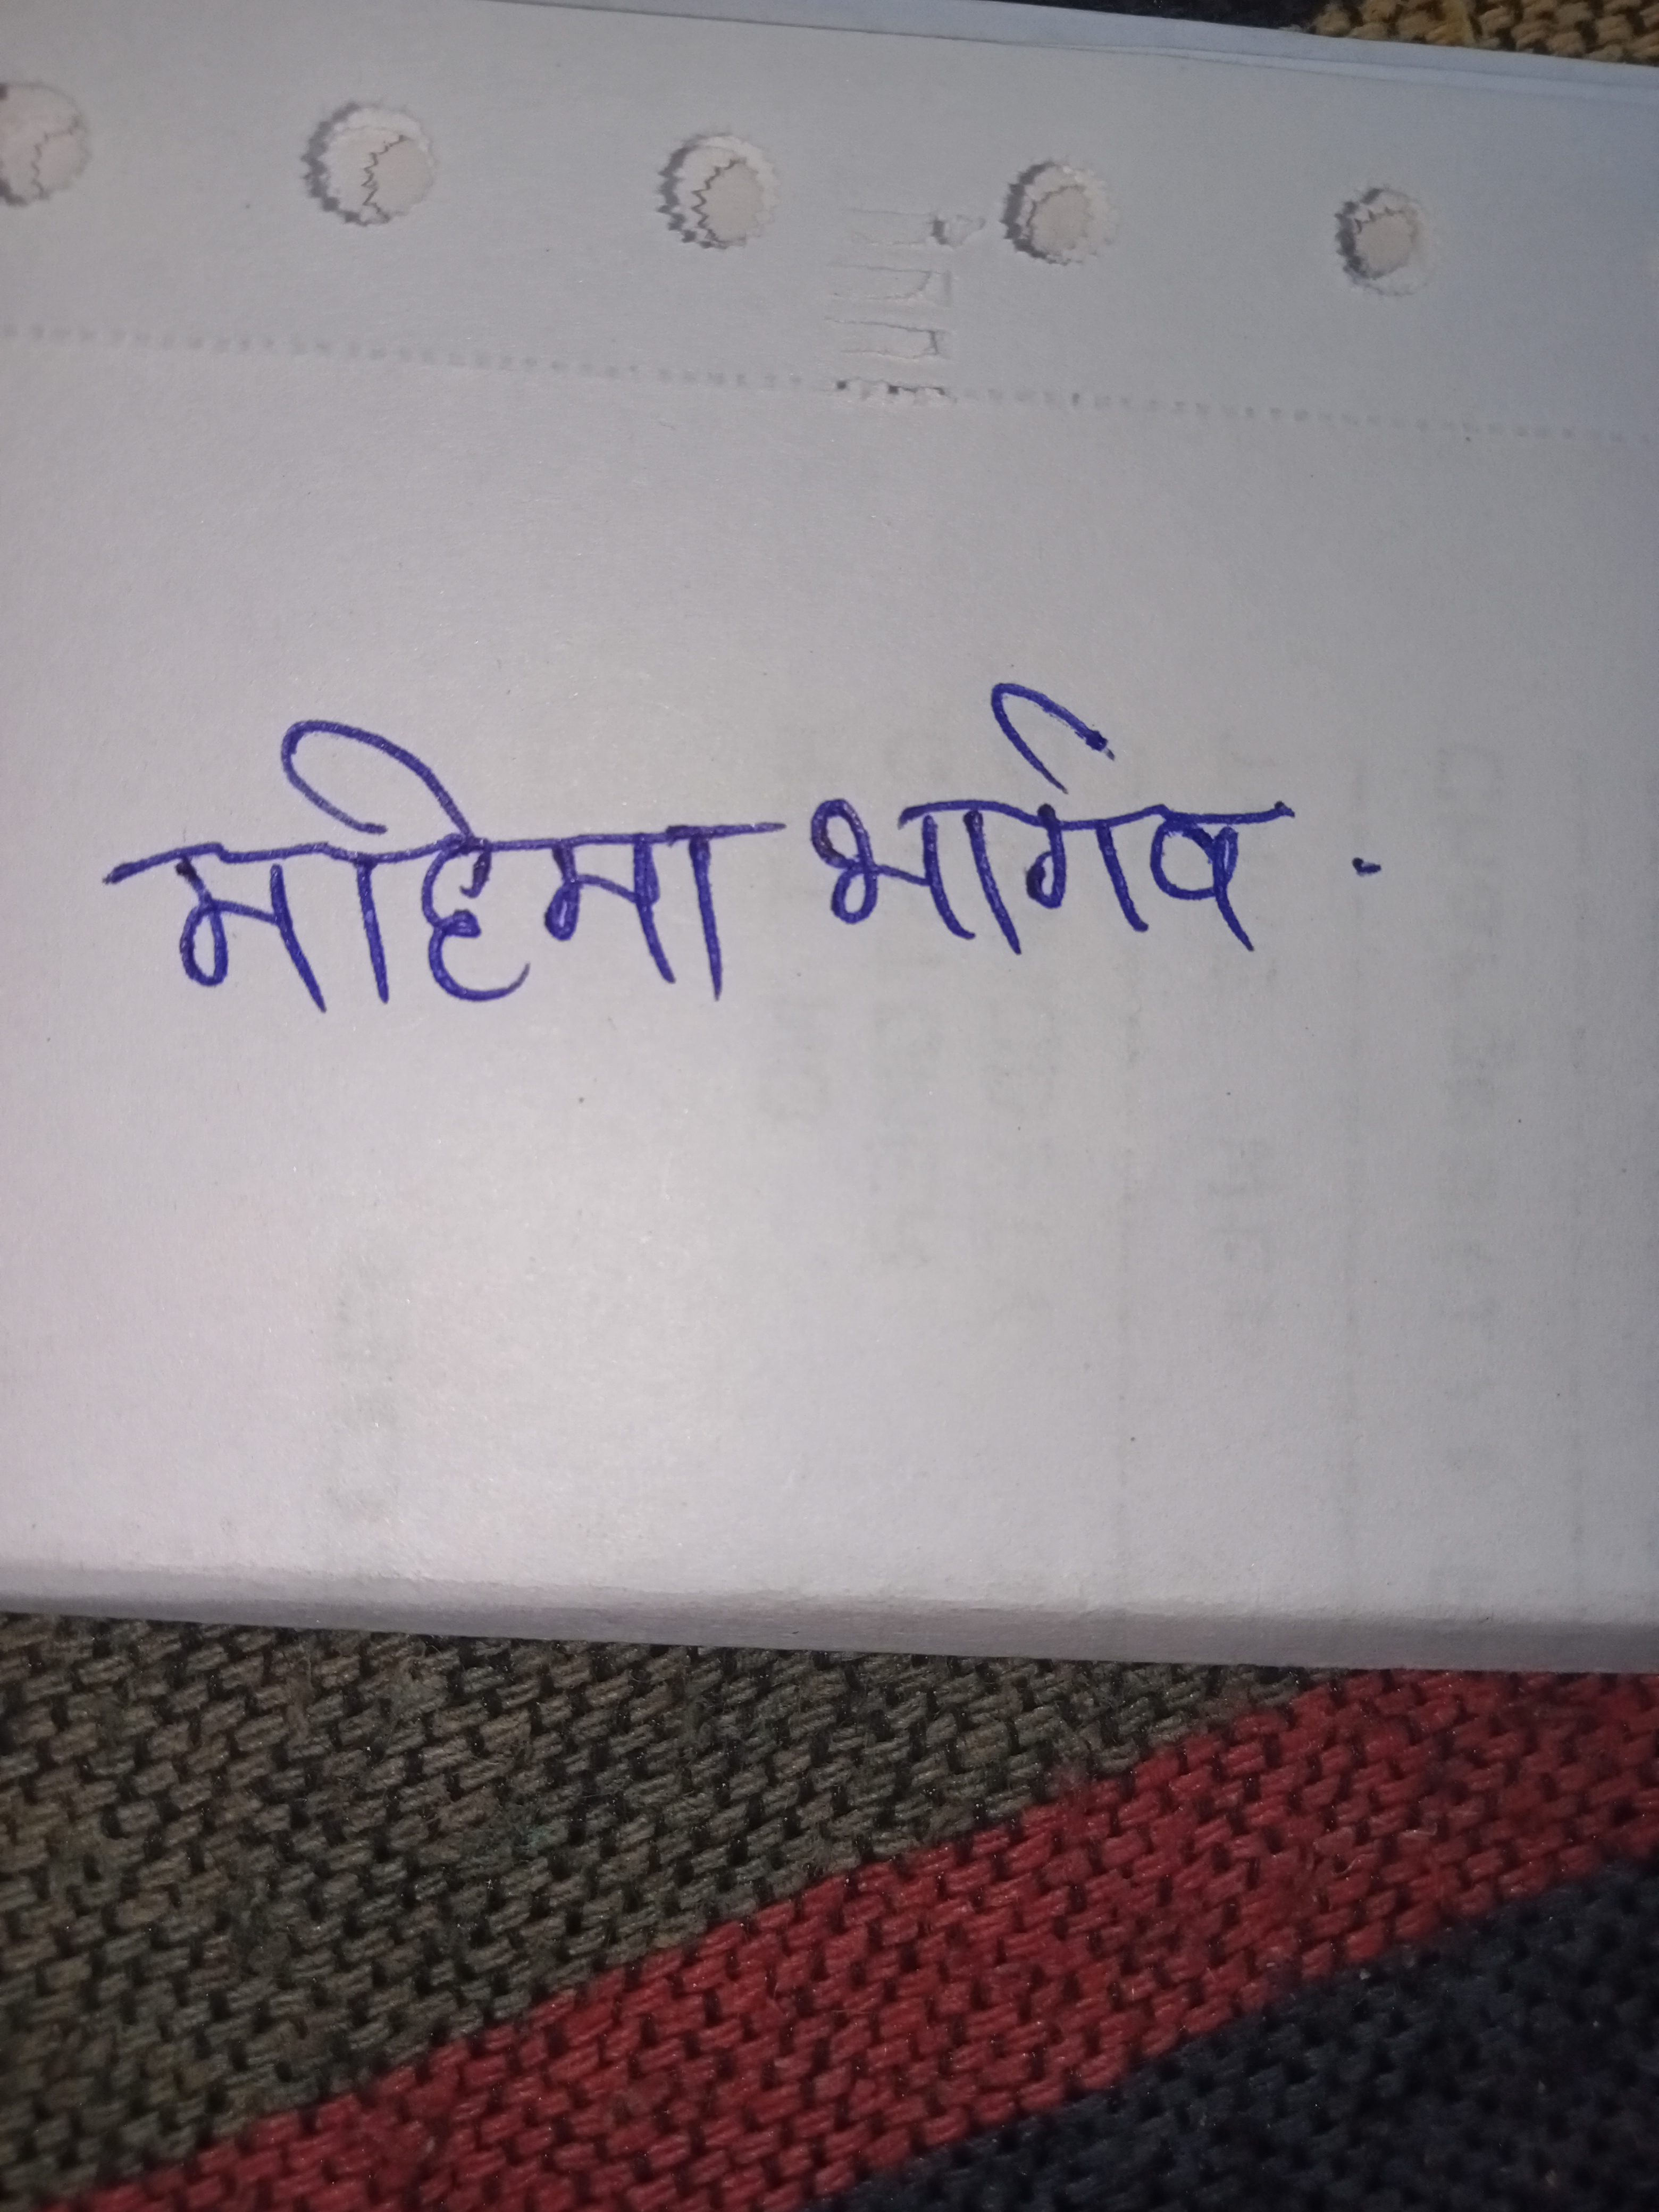 महिमा भार्गव .